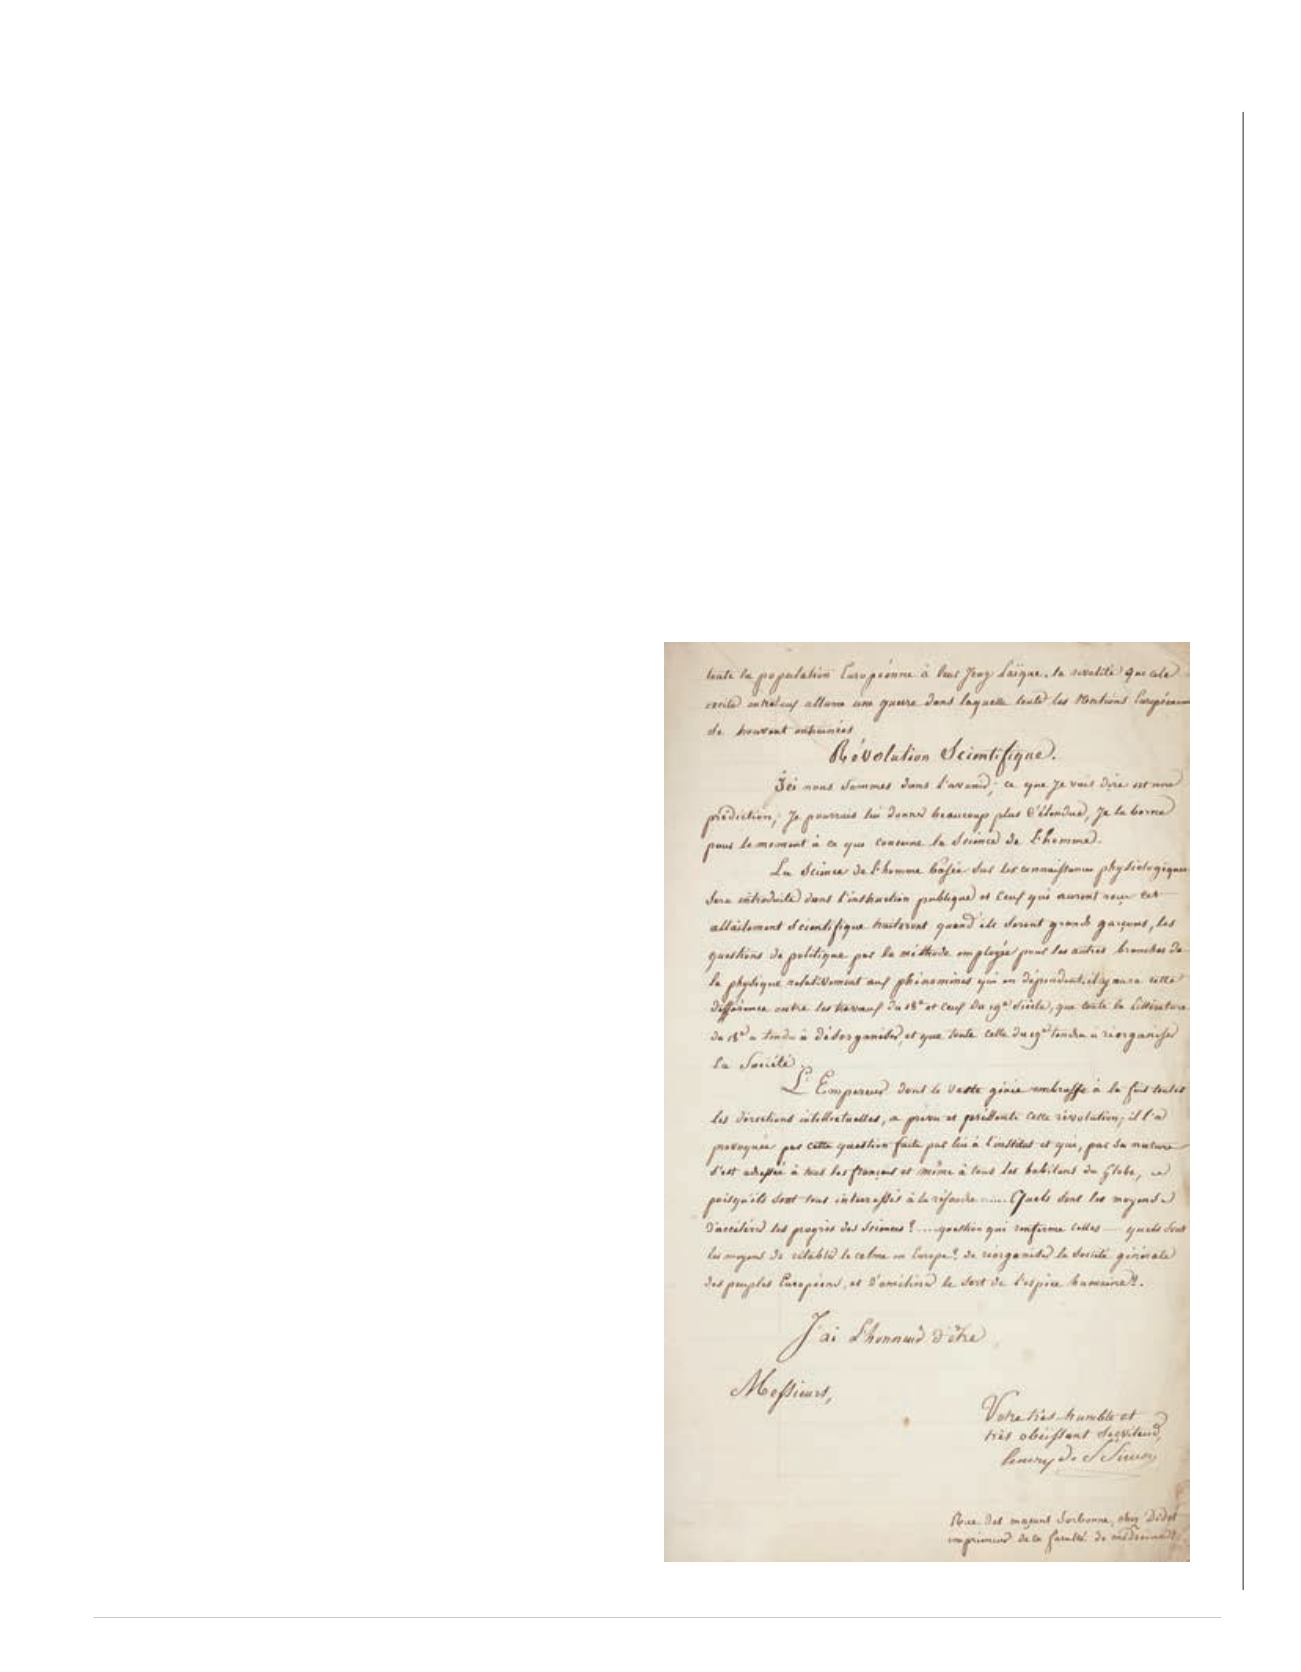 toute la population Européenne à leur joug Laïque. la rivalité que cela
excite entr'eux allume une guerre dans laquelle toutes les Nations Européennes
se trouvent entrainées
Révolution Scientifique.
Ici nous sommes dans l'avenir; ce que je vais dire est une
prédiction; Je pourrais lui donner beaucoup plus d'étendue, Je la borne
pour le moment à ce qui concerne la Science de l'homme.
La Science de l'homme basée sur les connaissances physiologiques
sera introduite dans l'instruction publique et ceux qui auront reçu cet
allaitement Scientifique traiteront quand ils seront grands garçons, les
questions de politique par la méthode employée pour les autres branches de
la physique relativement aux phénomènes qui en dépendent. il y aura cette
différence entre les travaux du 18e et ceux du 19e Siècle, que toute la littérature
du 18e a tendu à désorganiser, et que toute celle du 19e tendra à réorganiser
la Société.
L'Empereur dont le vaste génie embrasse à la fois toutes
les directions intellectuelles, a prévu et pressenti cette révolution; il l'a
provoquée par cette question faite par lui à l'institut et qui, par sa nature
s'est adressée à tous les français et même à tous les habitans du Globe,
puisqu'ils sont tous intéressés à la résoudre Quels sont les moyens
d'accélérer les progrès des Sciences? ... question qui renferme celles — quels sont
les moyens de rétablir le calme en Europe? de réorganiser la Société générale
des peuples Européens, et d'améliorer le sort de l'espèce humaine?.
J'ai l'honneur d'être
Messieurs,
Votre très humble et
très obéissant Serviteur,
henry de St Simon
Rue des maçons Sorbonne, chez Didot
imprimeur de la faculté de médecine